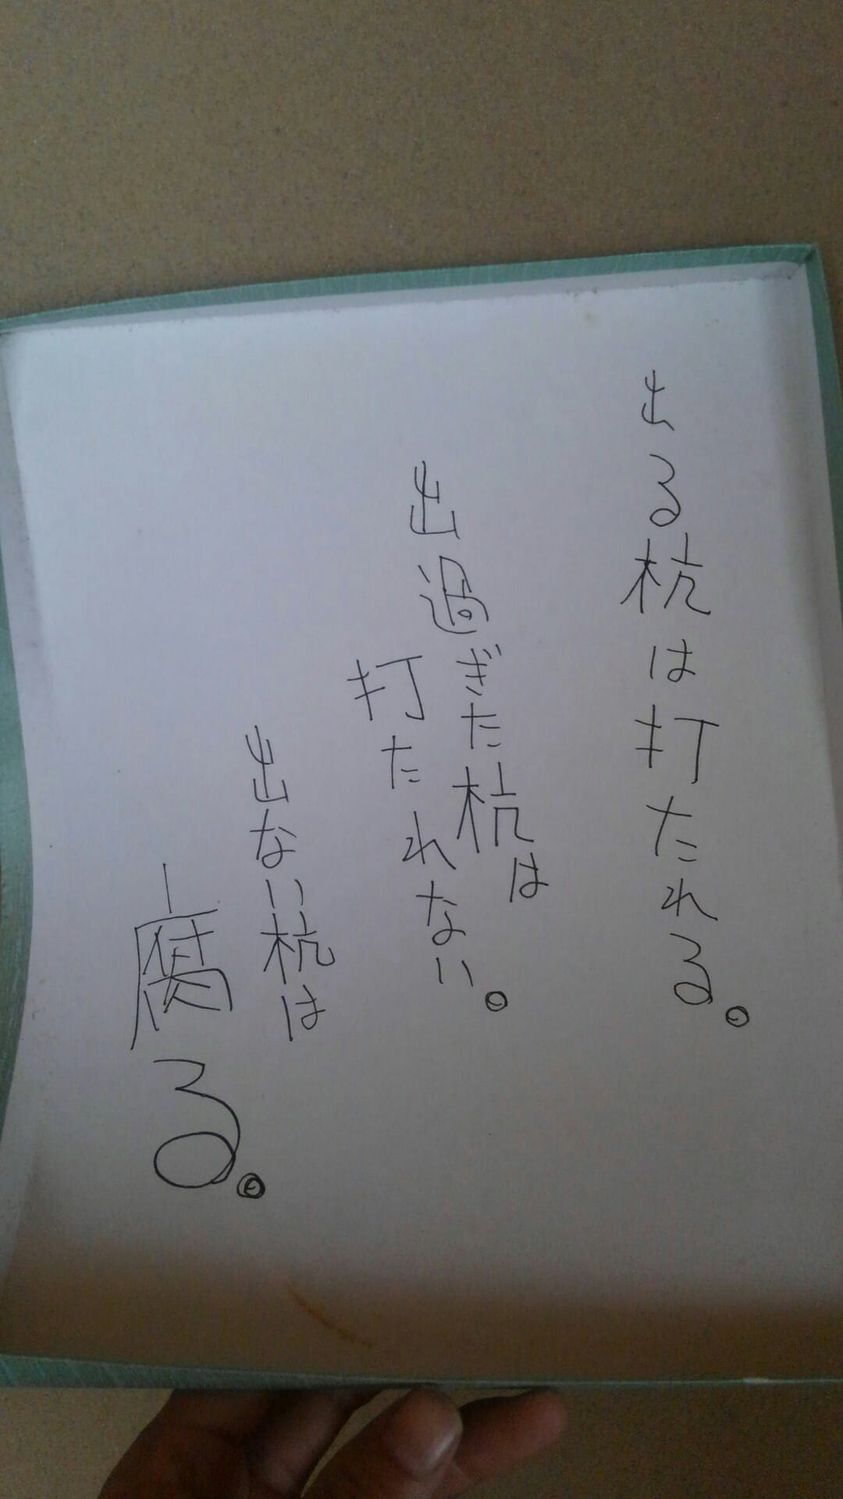 出る杭は打たれる。
出過ぎた杭は
打たれない。
出ない杭は
腐る。